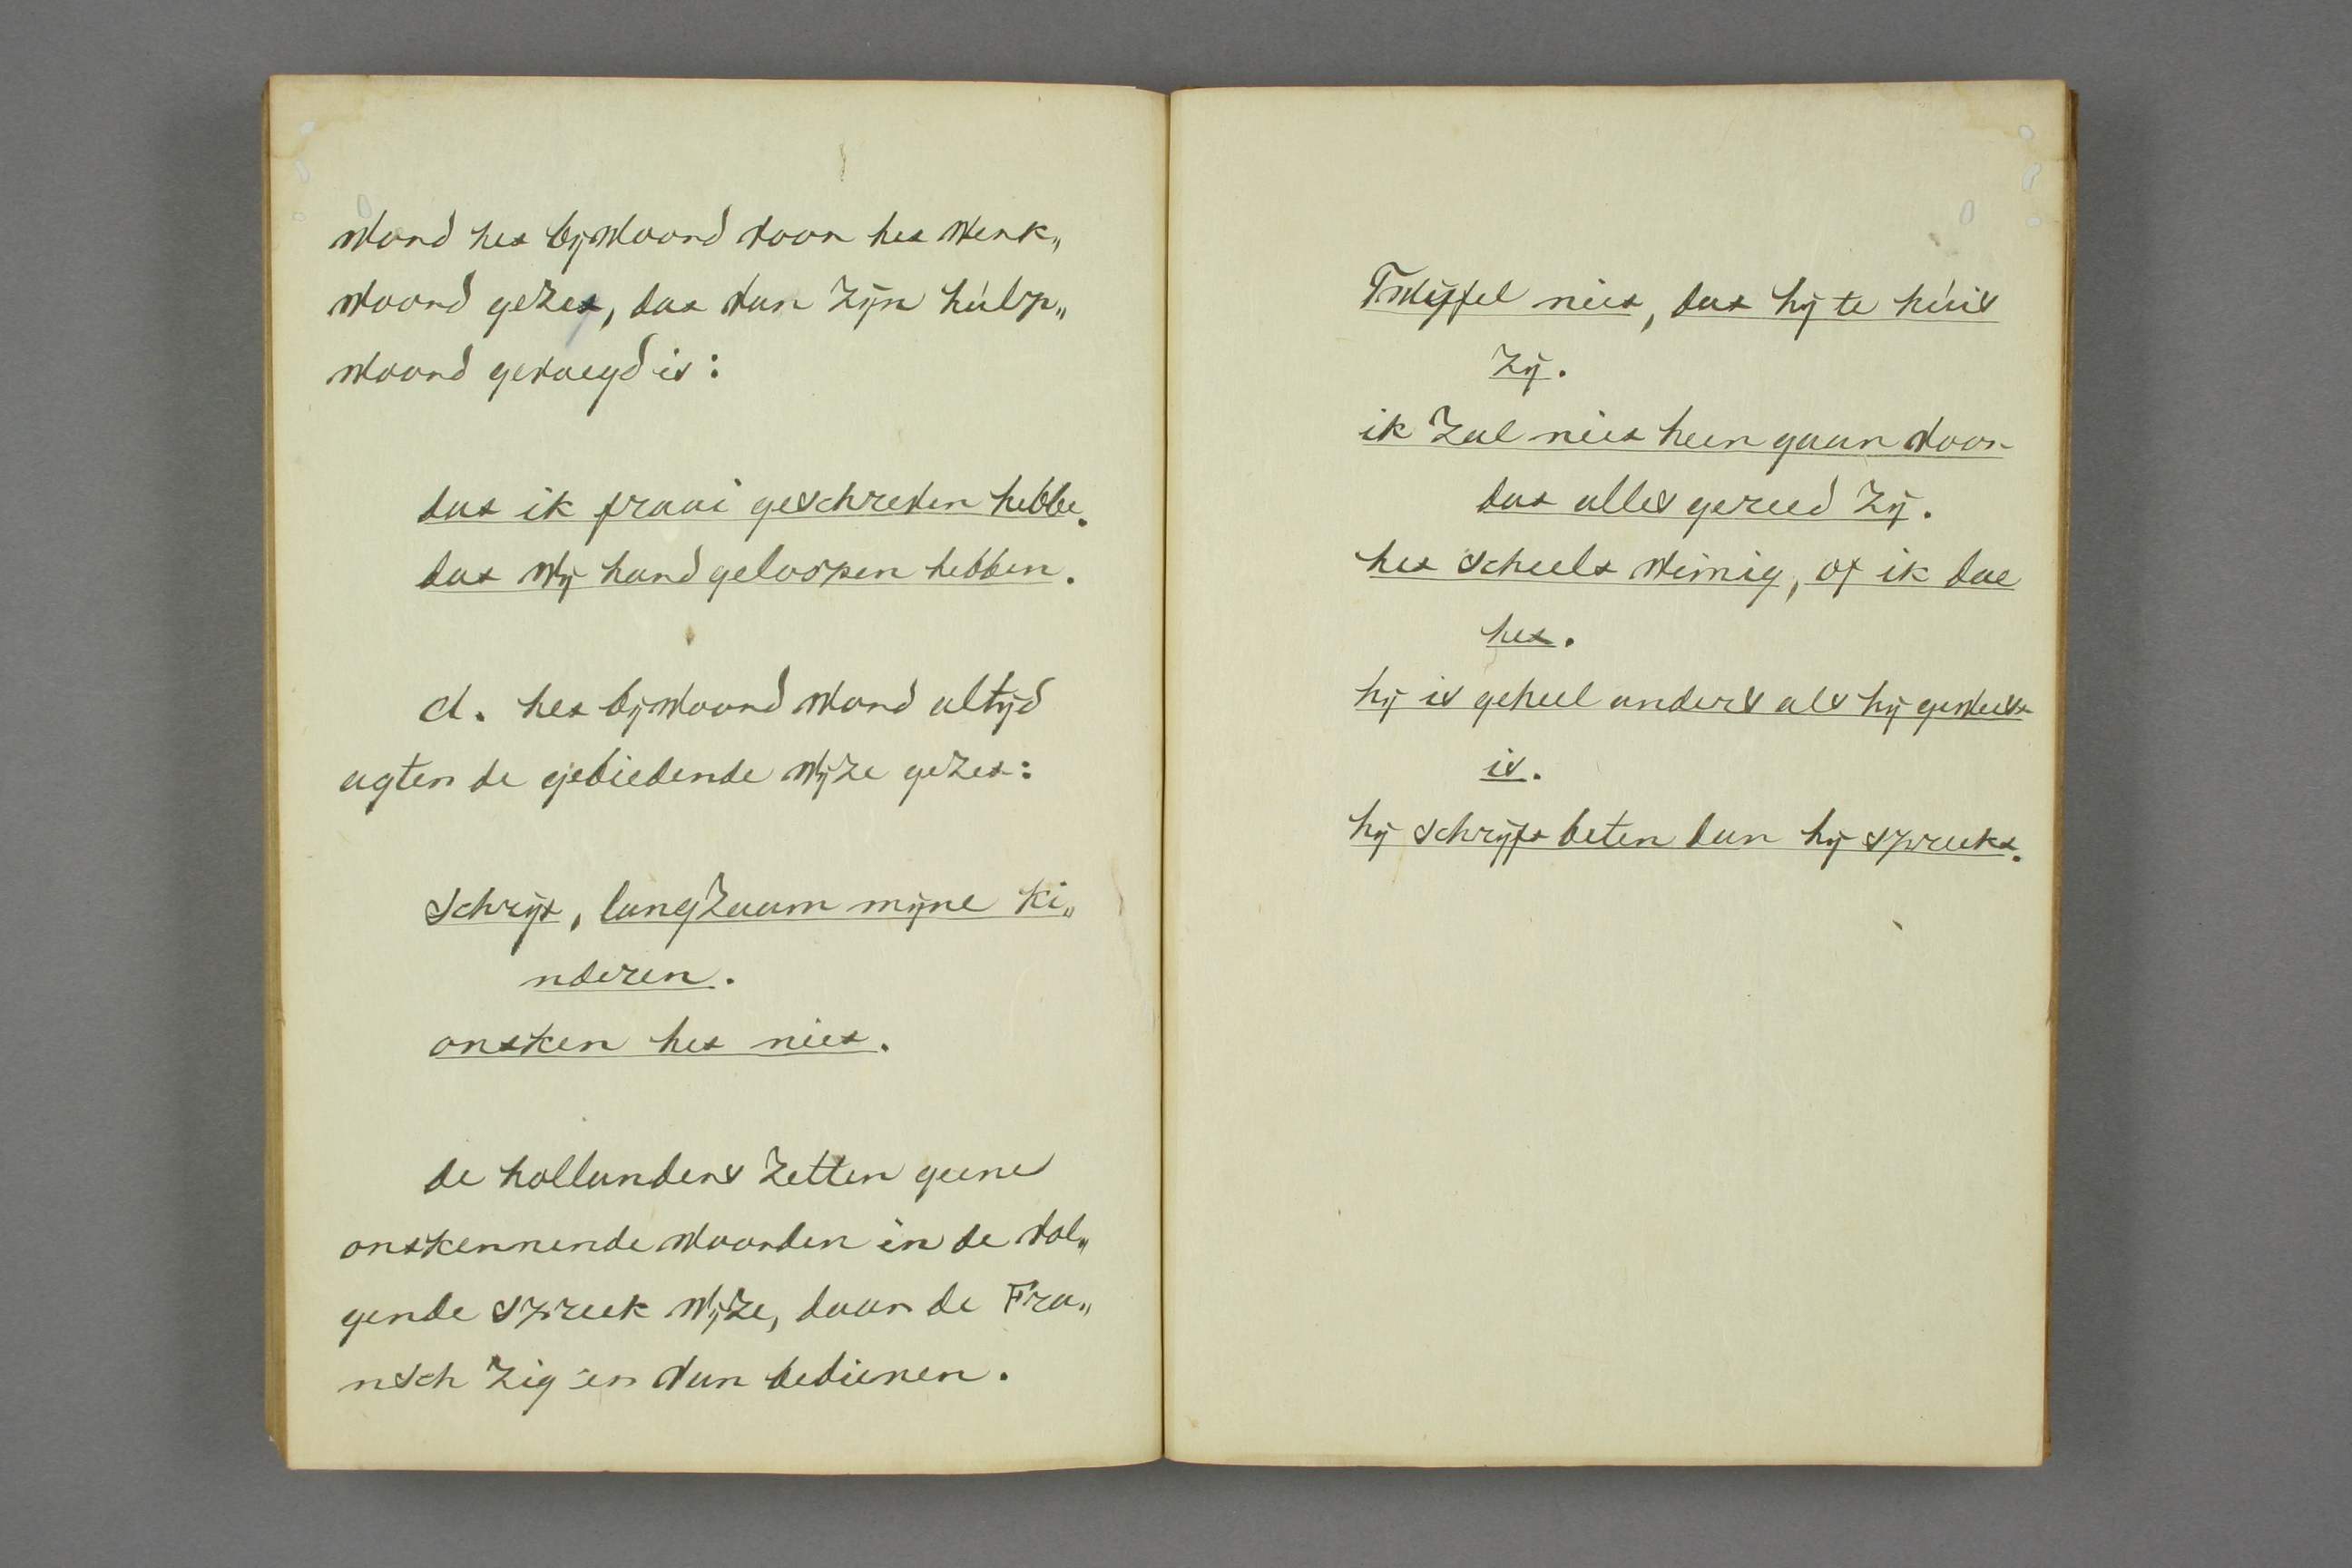 word het bywoord voor het werk„
woord gezet, dat van zyn hulp„
woord gevoegd is:
dat ik fraai geschreven hebbe.
dat wy hard geloopen hebben.
d. het bywoord word altyd
agter de gebiedende wyze gezet:
schryft, langzaam myne ki„
nderen.
ontken het niet.
de hollanders zetten geene
ontkennende woorden in de vol„
gende spreek wyze, daar de Fra„
nsch zig er van bedienen.
Twyffel niet, dat hy te huis
zy.
ik zal niet heen gaan voor
dat alles gereed zy.
het scheelt weinig, of ik doe
het.
hy is geheel anders als hy geweest
is.
hy schryft beter dan hy spreekt.